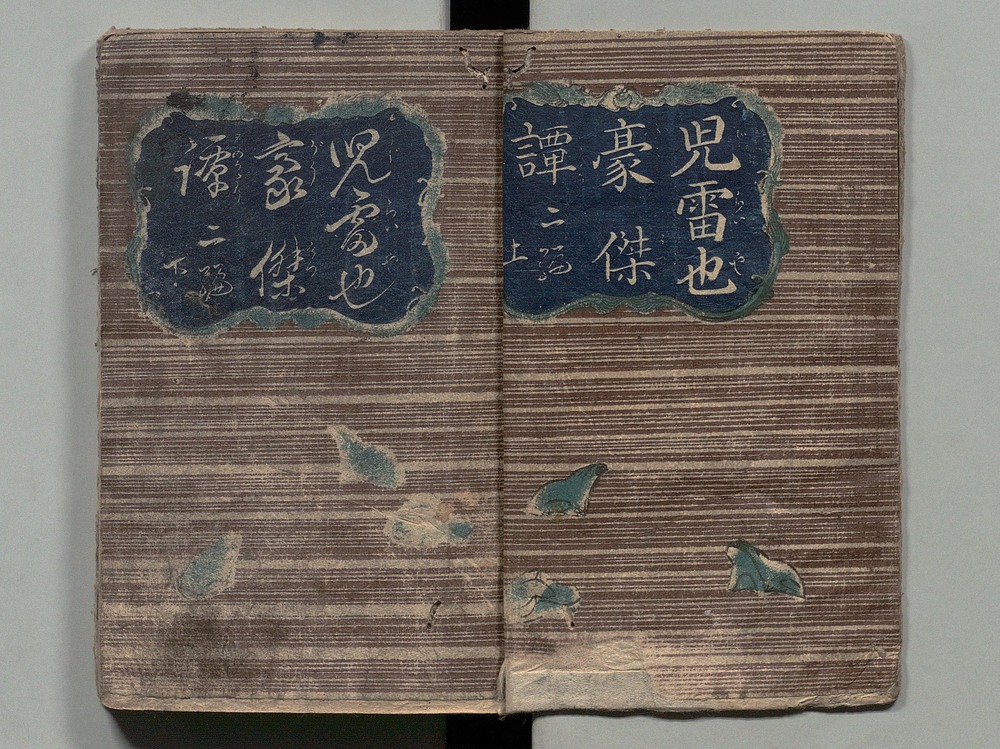 児雷也
豪傑
譚二編
上
児雷也
豪傑
譚二編
下